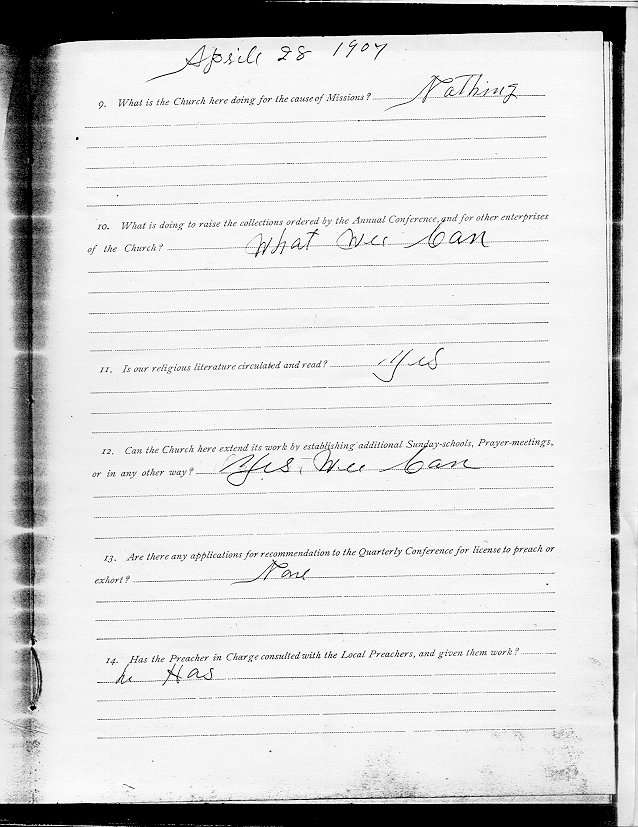 Aprile 28 1907
9. What is the Church here doing for the cause of Missions? Nothing
10. What is doing to raise the collections ordered by the Annual Conference, and for other enterprises
of the Church? What Wee Can
11. Is our religious literature circulated and read? Yes
12. Can the Church here extend its work by establishing additional Sunday-schools, Prayer-meetings,
or in any other way? Yes, Wee Can
13. Are there any applications for recommendation to the Quarterly Conference for license to preach or
exhort? None
14. Has the Preacher in Charge consulted with the Local Preachers, and given them work?
he Has